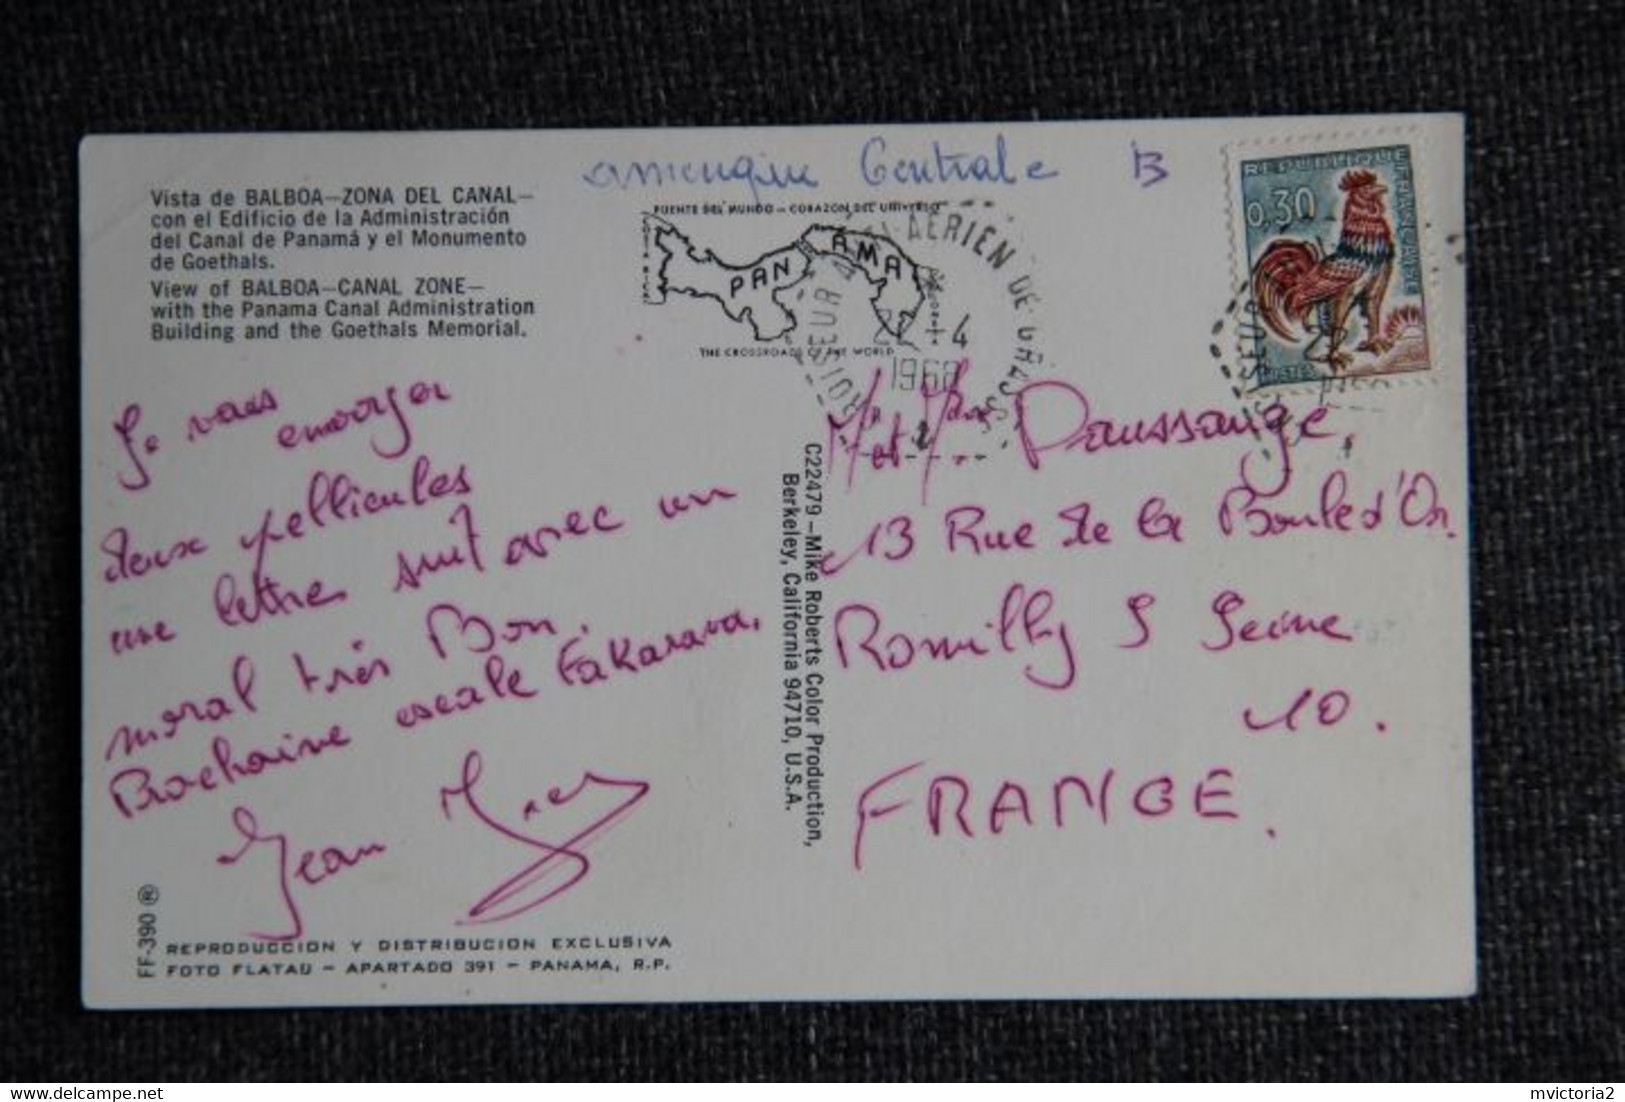 amerique Centrale B
Vista de BALBOA—ZONA DEL CANAL—
con el Edificio de la Administración
del Canal de Panamá y el Monumento
de Goethals.
View of BALBOA—CANAL ZONE—
with the Panama Canal Administration
Building and the Goethals Memorial.
PUENTE DEL MUNDO - CORAZON DEL UNIVERSO
PANAMA
THE CROSSROADS OF THE WORLD
CROISEUR
AERIEN DE GRASSE
4
1968
REPUBLIQUE FRANCAISE
0,30
POSTES
Je vais
envoyer
deux pellicules
une lettre suit avec un
moral très Bon.
Prochaine escale Fakarava,
Jean
Mr et Mme Daussange,
13 Rue de la Boule d'Or.
Romilly S Seine
10.
FRANCE.
C22479—Mike Roberts Color Production,
Berkeley, California 94710, U.S.A.
FF-390 ®
REPRODUCCION Y DISTRIBUCION EXCLUSIVA
FOTO FLATAU - APARTADO 391 - PANAMA, R.P.
mvictoria2